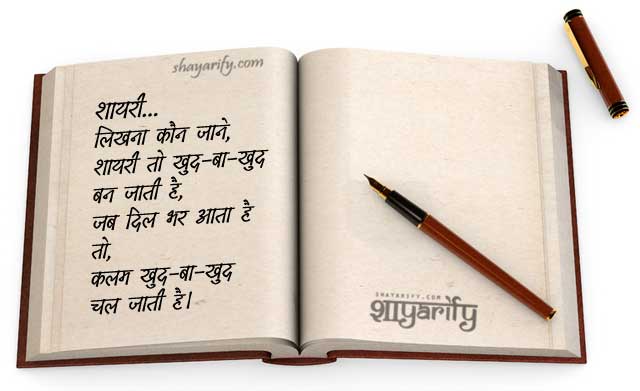 shayarify.com
शायरी...
लिखना कौन जाने,
शायरी तो खुद-बा-खुद
बन जाती है,
जब दिल भर आता है
तो,
कलम खुद-बा-खुद
चल जाती है।
SHAYARIFY.COM
शाyarify